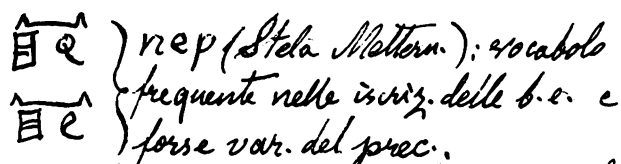 nep (Stela Mettern.): vocabolo
frequente nelle iscriz. delle b. e. e
forse var. del prec.